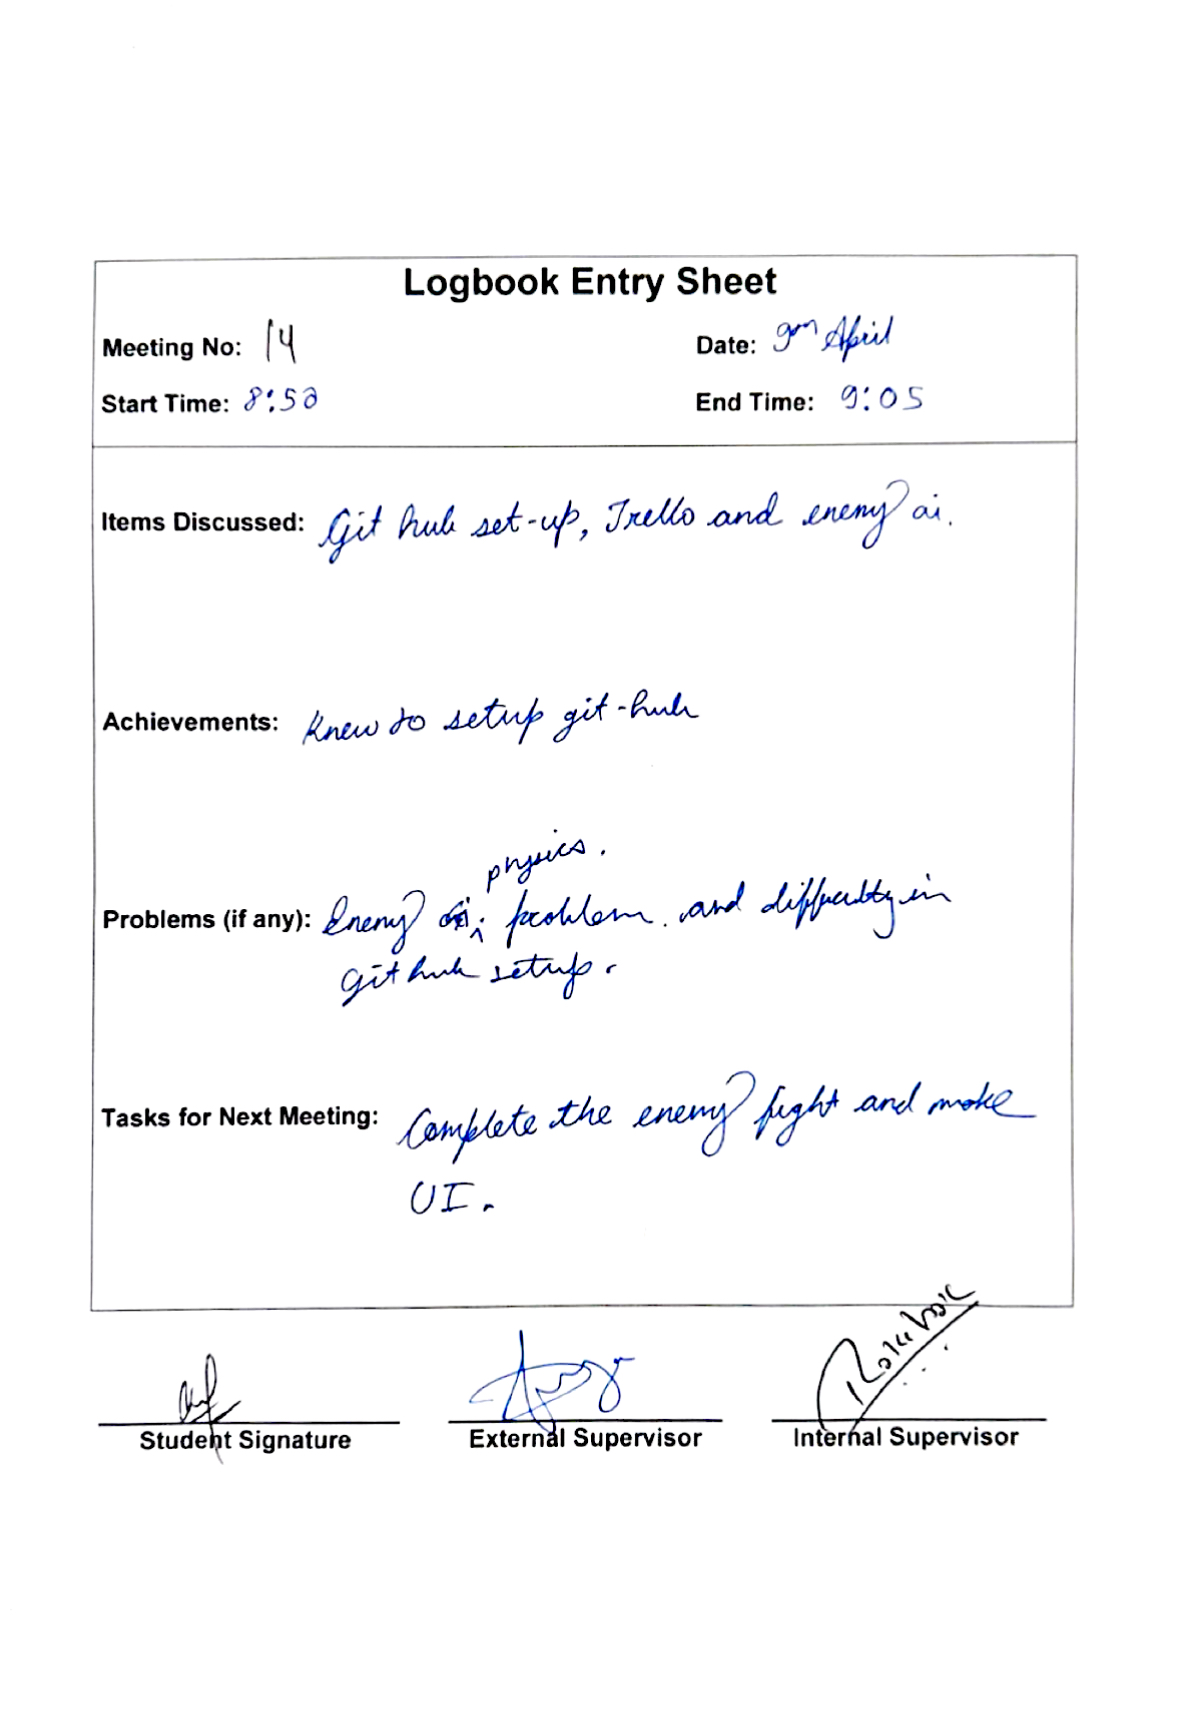 Logbook Entry Sheet
Meeting No: 14
Date: 9th April
Start Time: 8:50
End Time: 9:05
Items Discussed: Git hub set-up, Trello and enemy ai.
Achievements: Knew to setup git-hub
physics.
Problems (if any): Enemy ai problem and difficulty in
git hub setup.
Tasks for Next Meeting: Complete the enemy fight and make
UI.
Student Signature
External Supervisor
Internal Supervisor